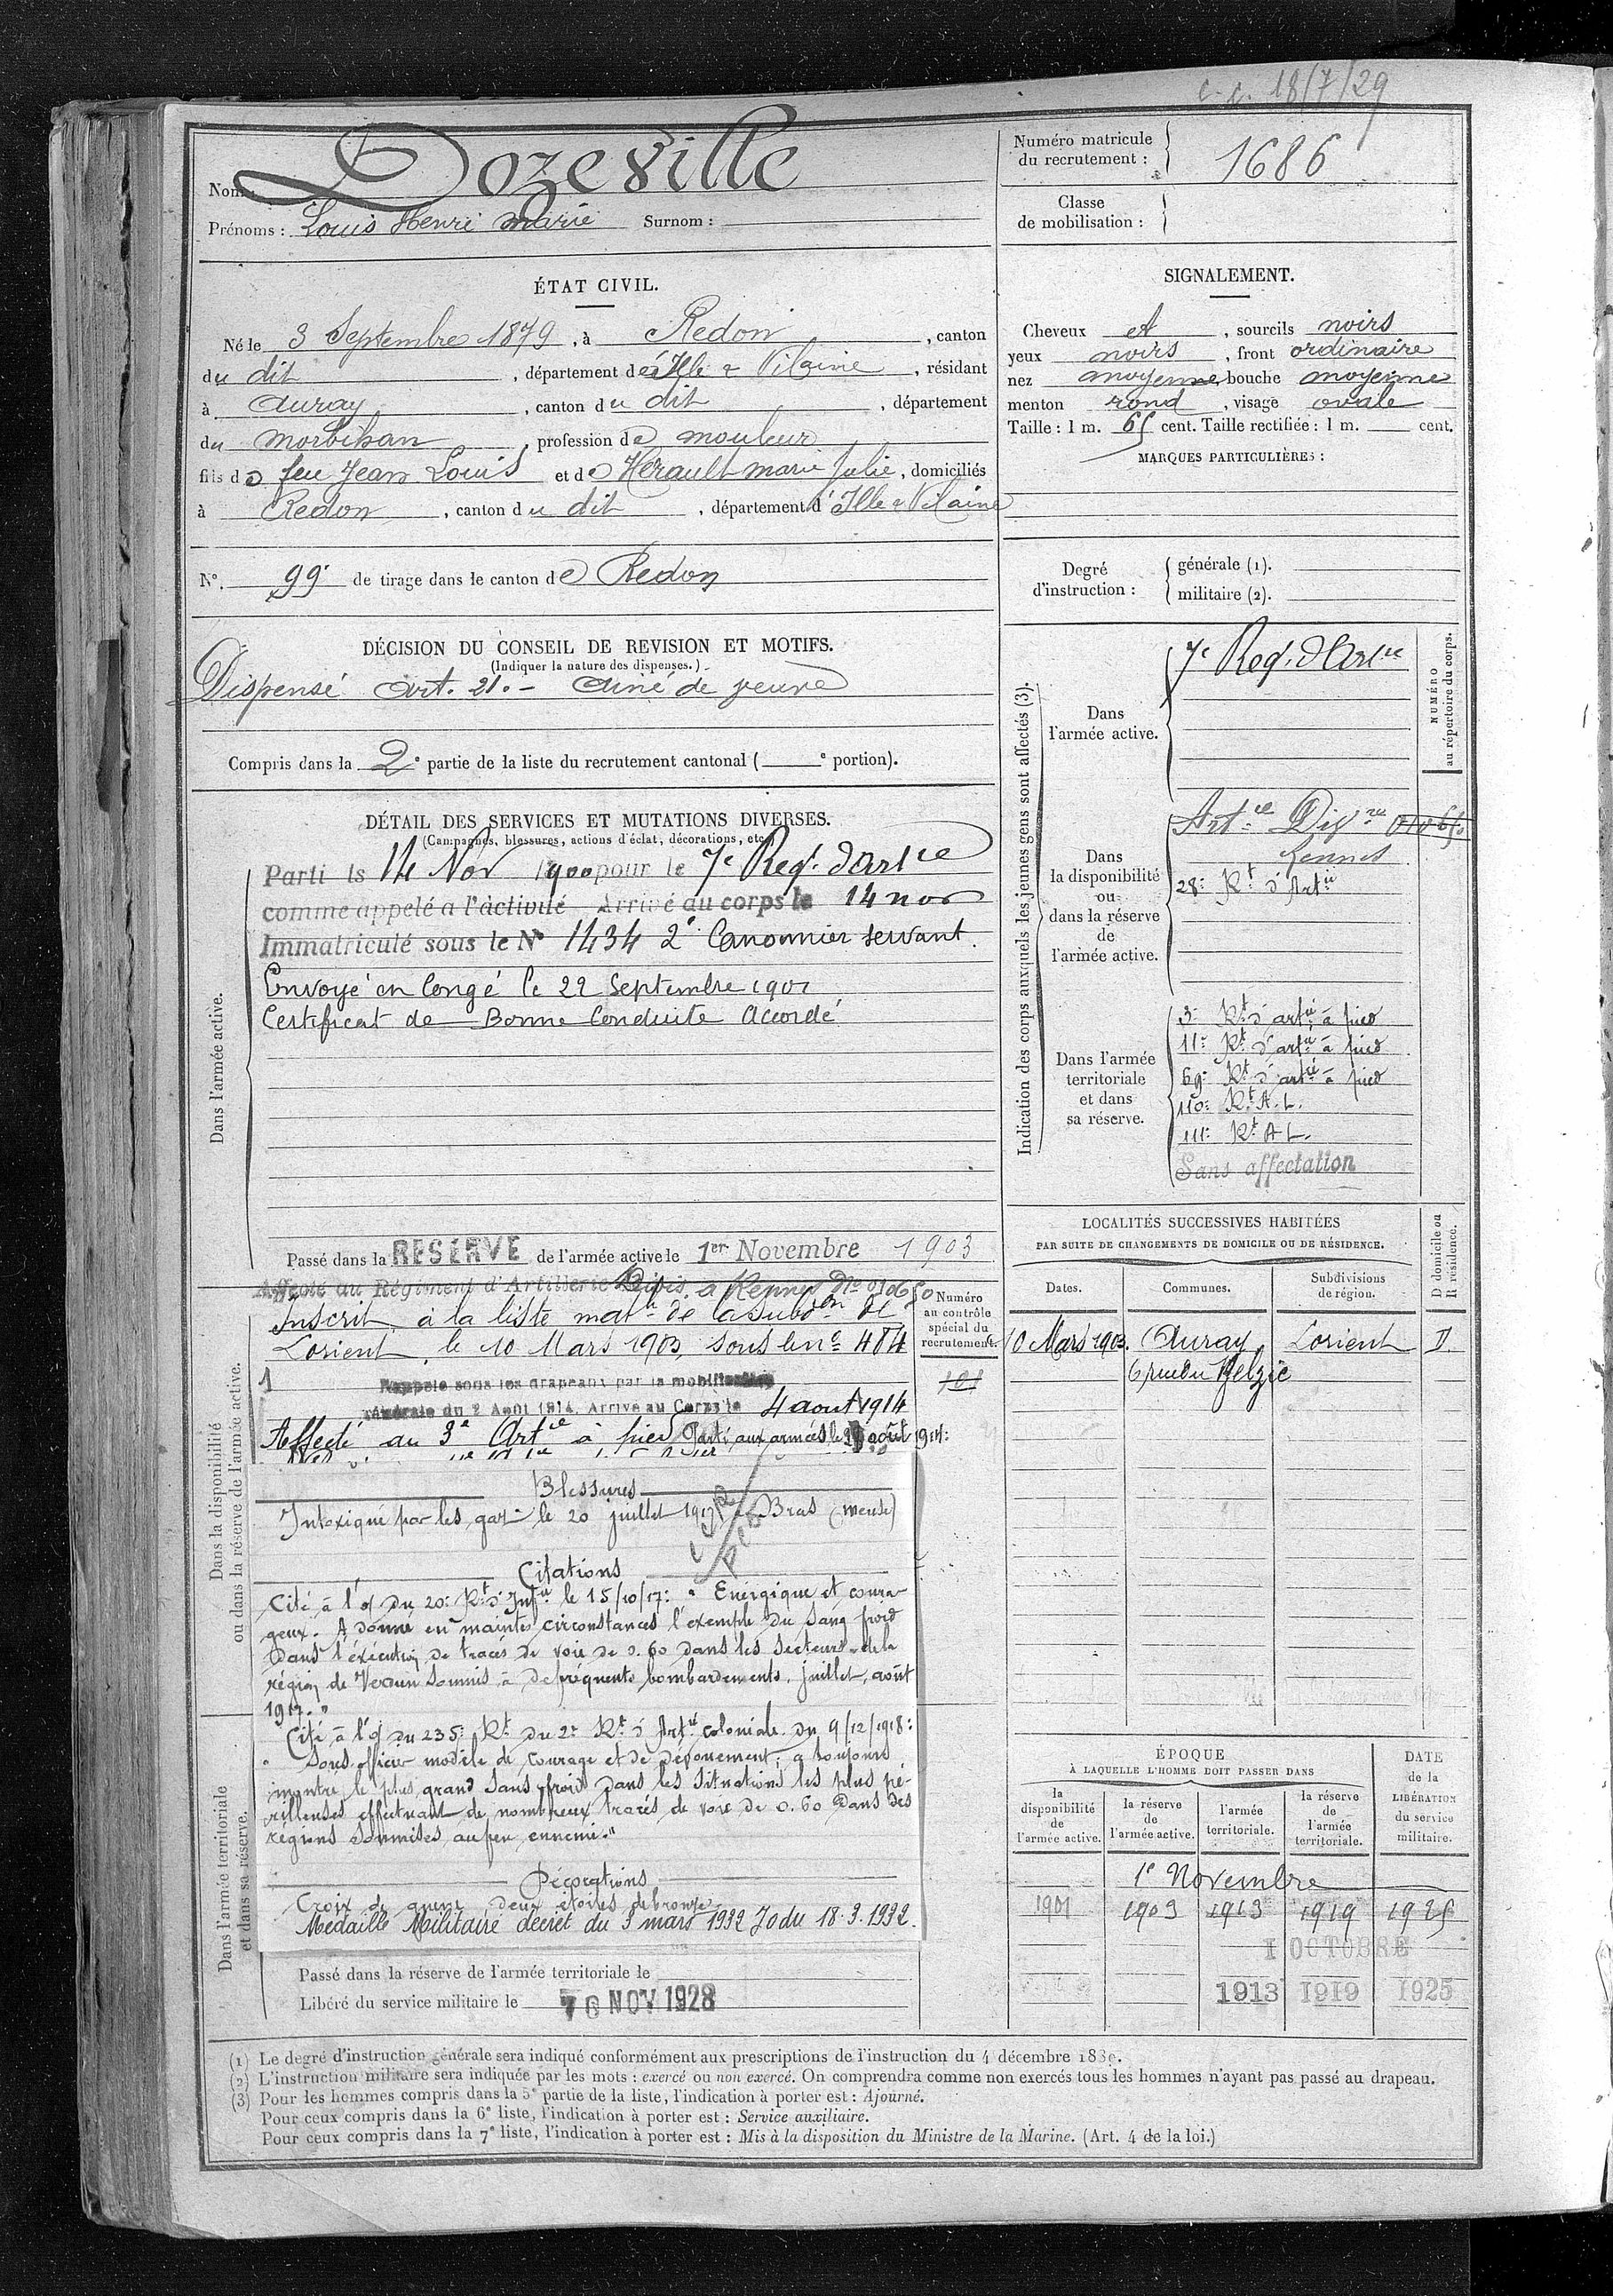 c.c. 18/7/29
Nom : Dozeville
Prénoms : Louis Henri Marie Surnom :
Numéro matricule du recrutement : 1686
Classe de mobilisation :
ÉTAT CIVIL.
Né le 3 Septembre 1879, à Redon, canton
du dit, département d'Ille & Vilaine, résidant
à Auray, canton du dit, département
du Morbihan, profession de mouleur
fils de feu Jean Louis et de Hérault Marie Julie, domiciliés
à Redon, canton du dit, département d'Ille & Vilaine
N°. 99 de tirage dans le canton de Redon
SIGNALEMENT.
Cheveux et, sourcils noirs
yeux noirs, front ordinaire
nez moyenne, bouche moyenne
menton rond, visage ovale
Taille : 1 m. 65 cent. Taille rectifiée : 1 m. cent.
MARQUES PARTICULIÈRES :
Degré d'instruction :
générale (1).
militaire (2).
DÉCISION DU CONSEIL DE REVISION ET MOTIFS.
(Indiquer la nature des dispenses.)
Dispensé Art. 21. - Ainé de veuve
Compris dans la 2e partie de la liste du recrutement cantonal ( e portion).
DÉTAIL DES SERVICES ET MUTATIONS DIVERSES.
(Campagnes, blessures, actions d'éclat, décorations, etc.)
Dans l'armée active.
Parti le 14 Nov 1900 pour le 7e Reg. d'Artie
comme appelé à l'activité Arrivé au corps le 14 nov
Immatriculé sous le N° 1434 2e Canonnier servant.
Envoyé en Congé le 22 Septembre 1901
Certificat de Bonne Conduite Accordé
Passé dans la RÉSERVE de l'armée active le 1er Novembre 1903
Dans la disponibilité
ou dans la réserve de l'armée active.
Affecté au Régiment d'Artillerie Divis. à Rennes No 01065
Inscrit à la liste matle de la subdon de
Lorient, le 10 Mars 1903, sous le no 484
1
Rappelé sous les drapeaux par la mobilisation
générale du 2 Août 1914. Arrivé au Corps le 4 août 1914
Affecté au 3e Artie à pied Parti aux armées le août 1914:
Numéro au contrôle spécial du recrutement.
Blessures
Intoxiqué par les gaz le 20 juillet 1917 à Bras (Meuse)
Citations
Cité à l'O/ du 20e Rt d'Infie le 15/10/17: " Energique et coura-
geux. A donné en maintes circonstances l'exemple du sang froid
dans l'exécution de tracés de voie de 0.60 dans les secteurs de la
région de Verdun soumis à de fréquents bombardements. juillet, août
1917. "
Cité à l'O/ du 235e Rt du 2e Rt d'Artie coloniale du 9/12/1918:
" Sous-officier modèle de courage et de dévouement; a toujours
montré le plus grand sang froid dans les situations les plus pé-
rilleuses effectuant de nombreux tracés de voie de 0.60 dans des
régions soumises au feu ennemi."
Décorations
Croix de guerre deux étoiles de bronze
Médaille Militaire décret du 3 mars 1932 JO du 18.3.1932.
Dans l'armée territoriale
et dans sa réserve.
Passé dans la réserve de l'armée territoriale le
Libéré du service militaire le NOV 1928
Indication des corps auxquels les jeunes gens sont affectés (3).
NUMÉRO
au répertoire du corps.
Dans l'armée active.
7e Reg. d'Artie
Dans la disponibilité ou dans la réserve de l'armée active.
Artie Divre 01065
Rennes
28e Rt d'Artie
Dans l'armée territoriale et dans sa réserve.
3e Rt d'artie à pied
11e Rt d'artie à pied
69e Rt d'artie à pied
110e Rt A.L.
111e Rt A L.
Sans affectation
LOCALITÉS SUCCESSIVES HABITÉES
PAR SUITE DE CHANGEMENTS DE DOMICILE OU DE RÉSIDENCE.
D domicile ou
R résidence.
Dates. Communes. Subdivisions de région.
10 Mars 1903. Auray Lorient D.
6, rue du Belzic
ÉPOQUE
À LAQUELLE L'HOMME DOIT PASSER DANS
DATE de la LIBÉRATION du service militaire.
la disponibilité de l'armée active. la réserve de l'armée active. l'armée territoriale. la réserve de l'armée territoriale.
1e Novembre
1901 1903 1913 1919 1925
1 OCTOBRE
1913 1919 1925
(1) Le degré d'instruction générale sera indiqué conformément aux prescriptions de l'instruction du 4 décembre 1889.
(2) L'instruction militaire sera indiquée par les mots : exercé ou non exercé. On comprendra comme non exercés tous les hommes n'ayant pas passé au drapeau.
(3) Pour les hommes compris dans la 5e partie de la liste, l'indication à porter est : Ajourné.
Pour ceux compris dans la 6e liste, l'indication à porter est : Service auxiliaire.
Pour ceux compris dans la 7e liste, l'indication à porter est : Mis à la disposition du Ministre de la Marine. (Art. 4 de la loi.)